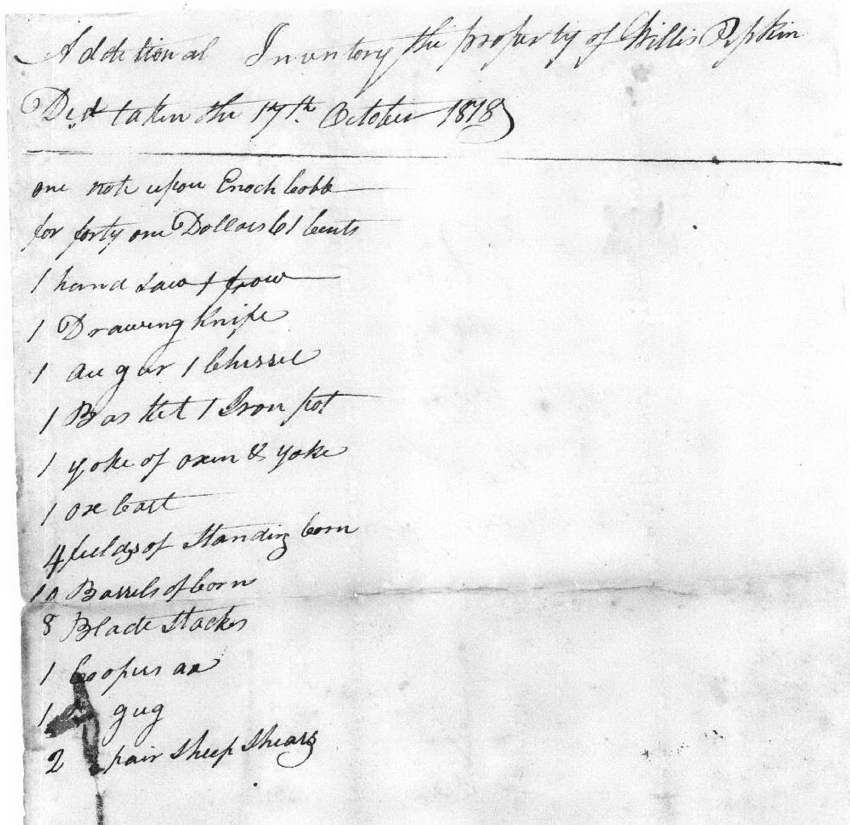 Additional Inventory the property of Willis Pipkin
Decd taken the 17th October 1818
one note upon Enoch Cobb
for forty one Dollars 61 Cents
1 hand saw & frow
1 Drawing Knife
1 augur 1 Chissel
1 Basket 1 Iron pot
1 yoke of oxen & yoke
1 ox Cart
4 fields of Standing Corn
10 Barrels of Corn
8 Blade Stacks
1 Coopers ax
1 gug
2 pair Sheep Shears